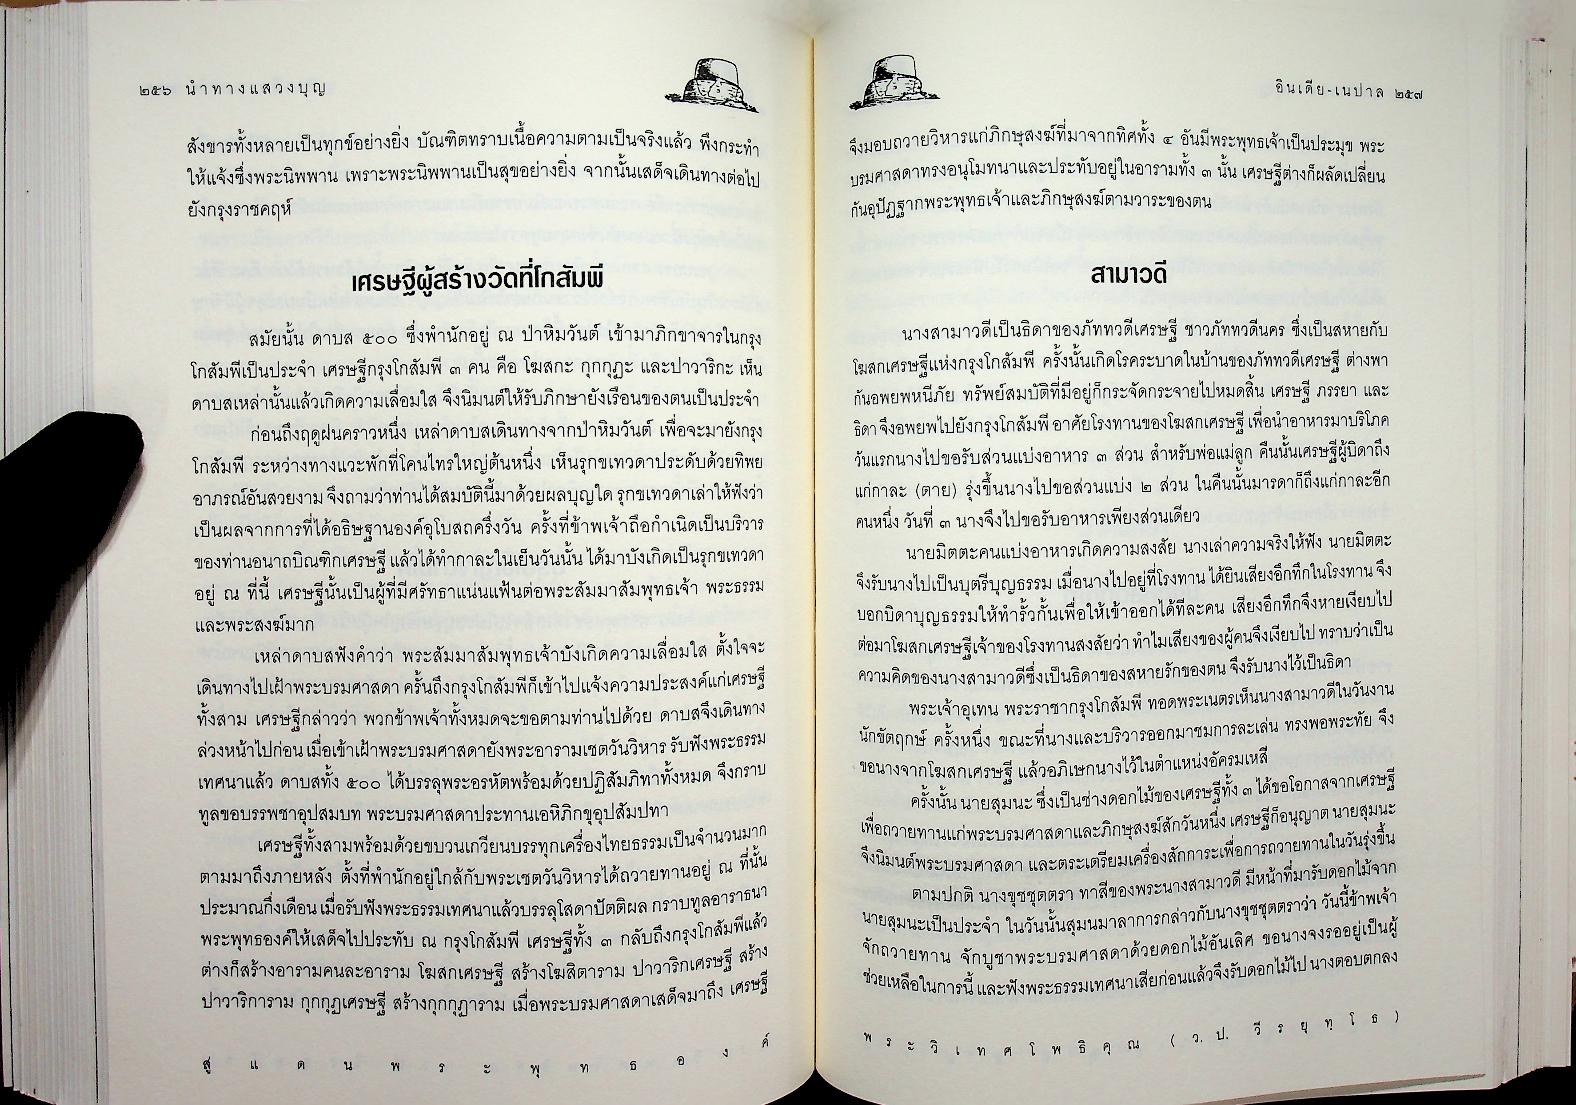 ๒๕๖ นำทางแสวงบุญ
สังขารทั้งหลายเป็นทุกข์อย่างยิ่ง บัณฑิตทราบเนื้อความตามเป็นจริงแล้ว พึงกระทำ
ให้แจ้งซึ่งพระนิพพาน เพราะพระนิพพานเป็นสุขอย่างยิ่ง จากนั้นเสด็จเดินทางต่อไป
ยังกรุงราชคฤห์
เศรษฐีผู้สร้างวัดที่โกสัมพี
สมัยนั้น ดาบส ๕๐๐ ซึ่งพำนักอยู่ ณ ป่าหิมวันต์ เข้ามาภิกขาจารในกรุง
โกสัมพีเป็นประจำ เศรษฐีกรุงโกสัมพี ๓ คน คือ โฆสกะ กุกกุฏะ และปาวาริกะ เห็น
ดาบสเหล่านั้นแล้วเกิดความเลื่อมใส จึงนิมนต์ให้รับภิกษายังเรือนของตนเป็นประจำ
ก่อนถึงฤดูฝนคราวหนึ่ง เหล่าดาบสเดินทางจากป่าหิมวันต์ เพื่อจะมายังกรุง
โกสัมพี ระหว่างทางแวะพักที่โคนไทรใหญ่ต้นหนึ่ง เห็นรุกขเทวดาประดับด้วยทิพย
อาภรณ์อันสวยงาม จึงถามว่าท่านได้สมบัตินี้มาด้วยผลบุญใด รุกขเทวดาเล่าให้ฟังว่า
เป็นผลจากการที่ได้อธิษฐานองค์อุโบสถครึ่งวัน ครั้งที่ข้าพเจ้าถือกำเนิดเป็นบริวาร
ของท่านอนาถบิณฑิกเศรษฐี แล้วได้ทำกาละในเย็นวันนั้น ได้มาบังเกิดเป็นรุกขเทวดา
อยู่ ณ ที่นี้ เศรษฐีนั้นเป็นผู้ที่มีศรัทธาแน่นแฟ้นต่อพระสัมมาสัมพุทธเจ้า พระธรรม
และพระสงฆ์มาก
เหล่าดาบสฟังคำว่า พระสัมมาสัมพุทธเจ้าบังเกิดความเลื่อมใส ตั้งใจจะ
เดินทางไปเฝ้าพระบรมศาสดา ครั้นถึงกรุงโกสัมพีก็เข้าไปแจ้งความประสงค์แก่เศรษฐี
ทั้งสาม เศรษฐีกล่าวว่า พวกข้าพเจ้าทั้งหมดจะขอตามท่านไปด้วย ดาบสจึงเดินทาง
ล่วงหน้าไปก่อน เมื่อเข้าเฝ้าพระบรมศาสดายังพระอารามเชตวันวิหาร รับฟังพระธรรม
เทศนาแล้ว ดาบสทั้ง ๕๐๐ ได้บรรลุพระอรหัตพร้อมด้วยปฏิสัมภิทาทั้งหมด จึงกราบ
ทูลขอบรรพชาอุปสมบท พระบรมศาสดาประทานเอหิภิกขุอุปสัมปทา
เศรษฐีทั้งสามพร้อมด้วยขบวนเกวียนบรรทุกเครื่องไทยธรรมเป็นจำนวนมาก
ตามมาถึงภายหลัง ตั้งที่พำนักอยู่ใกล้กับพระเชตวันวิหารได้ถวายทานอยู่ ณ ที่นั้น
ประมาณกึ่งเดือน เมื่อรับฟังพระธรรมเทศนาแล้วบรรลุโสดาปัตติผล กราบทูลอาราธนา
พระพุทธองค์ให้เสด็จไปประทับ ณ กรุงโกสัมพี เศรษฐีทั้ง ๓ กลับถึงกรุงโกสัมพีแล้ว
ต่างก็สร้างอารามคนละอาราม โฆสกเศรษฐี สร้างโฆสิตาราม ปาวาริกเศรษฐี สร้าง
ปาวาริการาม กุกกุฏเศรษฐี สร้างกุกกุฏาราม เมื่อพระบรมศาสดาเสด็จมาถึง เศรษฐี
สู่แดนพระพุทธองค์
อินเดีย-เนปาล ๒๕๗
จึงมอบถวายวิหารแก่ภิกษุสงฆ์ที่มาจากทิศทั้ง ๔ อันมีพระพุทธเจ้าเป็นประมุข พระ
บรมศาสดาทรงอนุโมทนาและประทับอยู่ในอารามทั้ง ๓ นั้น เศรษฐีต่างก็ผลัดเปลี่ยน
กันอุปัฏฐากพระพุทธเจ้าและภิกษุสงฆ์ตามวาระของตน
สามาวดี
นางสามาวดีเป็นธิดาของภัททวดีเศรษฐี ชาวภัททวดีนคร ซึ่งเป็นสหายกับ
โฆสกเศรษฐีแห่งกรุงโกสัมพี ครั้งนั้นเกิดโรคระบาดในบ้านของภัททวดีเศรษฐี ต่างพา
กันอพยพหนีภัย ทรัพย์สมบัติที่มีอยู่ก็กระจัดกระจายไปหมดสิ้น เศรษฐี ภรรยา และ
ธิดา จึงอพยพไปยังกรุงโกสัมพี อาศัยโรงทานของโฆสกเศรษฐี เพื่อนำอาหารมาบริโภค
วันแรกนางไปขอรับส่วนแบ่งอาหาร ๓ ส่วน สำหรับพ่อแม่ลูก คืนนั้นเศรษฐีผู้บิดาถึง
แก่กาละ (ตาย) รุ่งขึ้นนางไปขอส่วนแบ่ง ๒ ส่วน ในคืนนั้นมารดาก็ถึงแก่กาละอีก
คนหนึ่ง วันที่ ๓ นางจึงไปขอรับอาหารเพียงส่วนเดียว
นายมิตตะคนแบ่งอาหารเกิดความสงสัย นางเล่าความจริงให้ฟัง นายมิตตะ
จึงรับนางไปเป็นบุตรีบุญธรรม เมื่อนางไปอยู่ที่โรงทาน ได้ยินเสียงอึกทึกในโรงทาน จึง
บอกบิดาบุญธรรมให้ทำรั้วกั้นเพื่อให้เข้าออกได้ทีละคน เสียงอึกทึกจึงหายเงียบไป
ต่อมาโฆสกเศรษฐีเจ้าของโรงทานสงสัยว่า ทำไมเสียงของผู้คนจึงเงียบไป ทราบว่าเป็น
ความคิดของนางสามาวดีซึ่งเป็นธิดาของสหายรักของตน จึงรับนางไว้เป็นธิดา
พระเจ้าอุเทน พระราชากรุงโกสัมพี ทอดพระเนตรเห็นนางสามาวดีในวันงาน
นักขัตฤกษ์ ครั้งหนึ่ง ขณะที่นางและบริวารออกมาชมการละเล่น ทรงพอพระทัย จึง
ขอนางจากโฆสกเศรษฐี แล้วอภิเษกนางไว้ในตำแหน่งอัครมเหสี
ครั้งนั้น นายสุมนะ ซึ่งเป็นช่างดอกไม้ของเศรษฐีทั้ง ๓ ได้ขอโอกาสจากเศรษฐี
เพื่อถวายทานแก่พระบรมศาสดาและภิกษุสงฆ์สักวันหนึ่ง เศรษฐีก็อนุญาต นายสุมนะ
จึงนิมนต์พระบรมศาสดา และตระเตรียมเครื่องสักการะเพื่อการถวายทานในวันรุ่งขึ้น
ตามปกติ นางขุชชุตตรา ทาสีของพระนางสามาวดี มีหน้าที่มารับดอกไม้จาก
นายสุมนะเป็นประจำ ในวันนั้นสุมนมาลาการกล่าวกับนางขุชชุตตราว่า วันนี้ข้าพเจ้า
จักถวายทาน จักบูชาพระบรมศาสดาด้วยดอกไม้อันเลิศ ขอนางจงรออยู่เป็นผู้
ช่วยเหลือในการนี้ และฟังพระธรรมเทศนาเสียก่อนแล้วจึงรับดอกไม้ไป นางตอบตกลง
พระวิเทศโพธิคุณ (ว.ป. วีรยุทฺโธ)